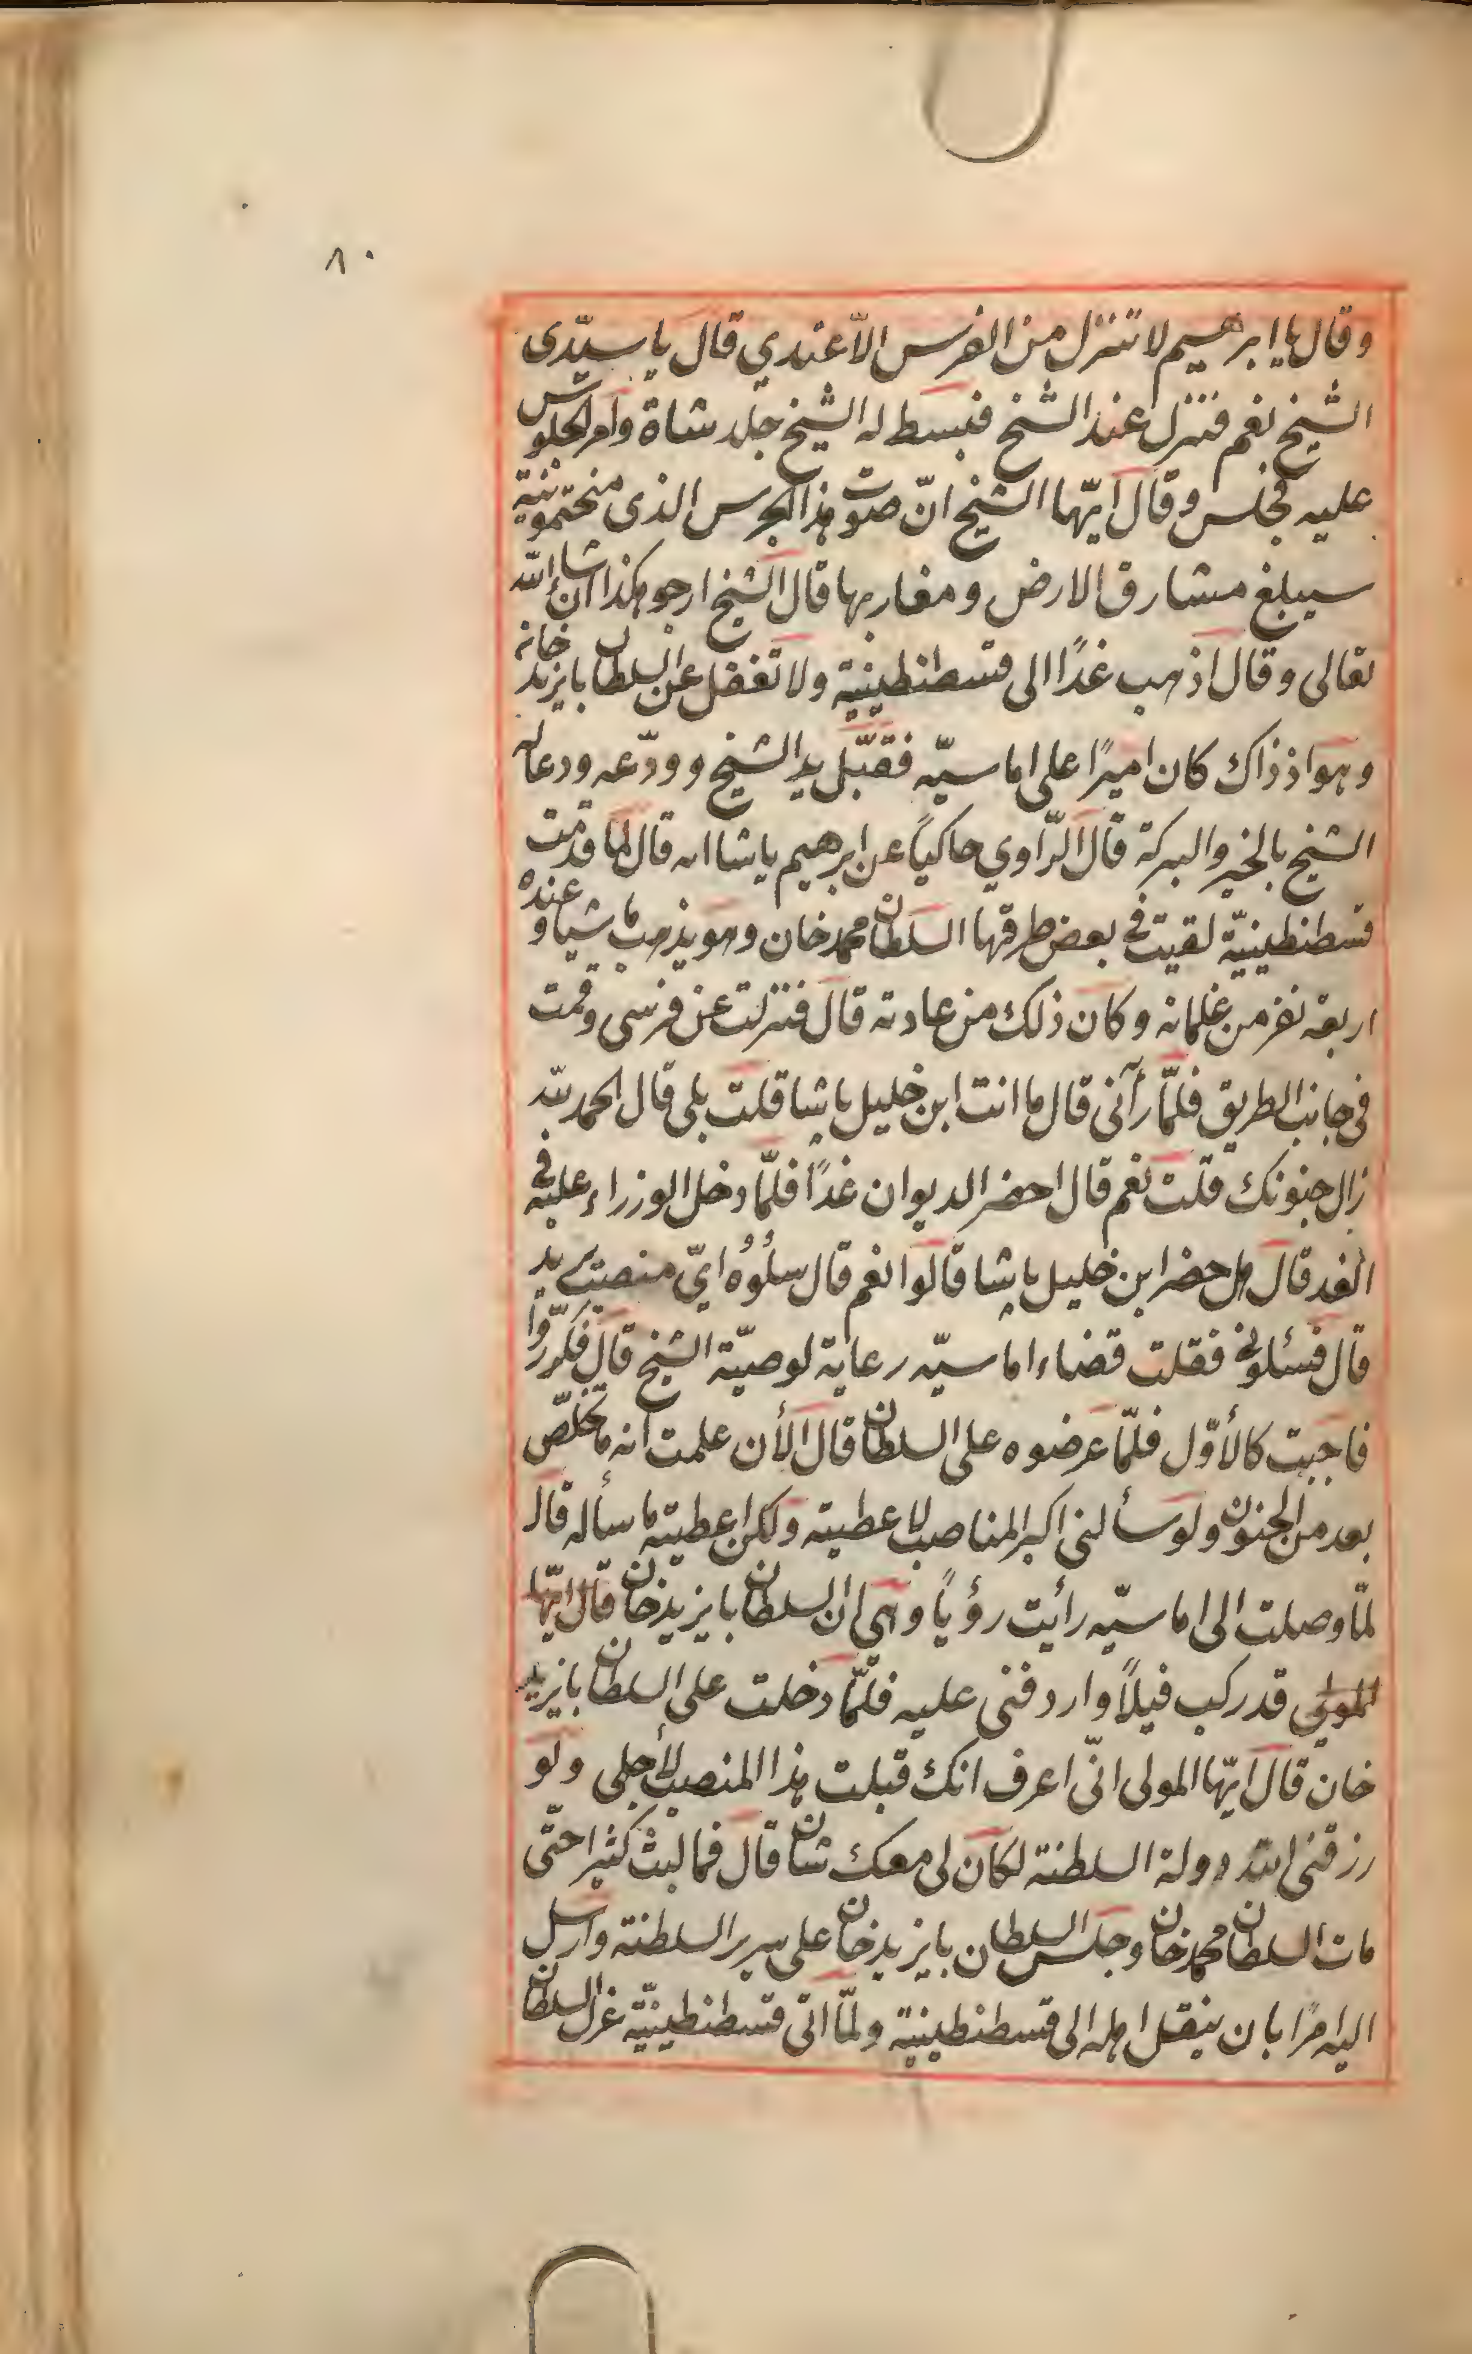 ٨٠
وقال يا ابرهيم لا تنزل من الفرس الّا عندي قال يا سيّدى
الشيخ نعم فنزل عند الشيخ فبسط له الشيخ جلد شاة وامر الجلوس
عليه فجلس وقال ايّها الشيخ انّ صوت هذا الجرس الذى منحتمونيه
سيبلغ مشارق الارض ومغاربها قال الشيخ ارجو هكذا ان شاء الله
تعالى وقال اذهب غدًا الى قسطنطينية ولا تغفل عن السلطان بايزيد خانه
وهو اذ ذاك كان اميرًا على اماسيّه فقبّل يد الشيخ وودّعه ودعا له
الشيخ بالخير والبركة قال الرّاوي حاكياً عن ابرهيم پاشا انه قال لما قدمت
قسطنطينيّة لقيت فى بعض طرقها السلطان محمد خان وهو يذهب ماشيا وعنده
اربعة نفر من غلمانه وكان ذلك من عادته قال فنزلت عن فرسى وقمت
فى جانب الطريق فلمّا رآنى قال ما انت ابن خليل پاشا قلت بلى قال الحمد لله
زال جنونك قلت نعم قال احضر الديوان غدًا فلمّا دخل الوزراء عليه فى
الغد قال هل حضر ابن خليل پاشا قالوا نعم قال سلُوُه ايّ منصب يريد
قال فسئلونى فقلت قضاء اماسيّه رعاية لوصيّة الشيخ قال فكرّروا
فاجبت كالأوّل فلمّا عرضوه على السلطان قال الأن علمت انه ما تخلّص
بعد من الجنون ولو سألنى اكبر المناصب لاعطيته ولكن اعطيته ما سأله قال
لمّا وصلت الى اماسيّه رأيت رؤياً وهي ان السلطان بايزيد خان قال ايّها
المولى قد ركب فيلاً واردفنى عليه فلمّا دخلت على السلطان بايزيد
خان قال ايّها المولى انّى اعرف انك قبلت هذا المنصب لأجلى ولو
رزقنى الله دولة السلطنة لكان لى معك شان قال فما لبث كثيرا حتّى
مات السلطان محمد خان وجلس السلطان بايزيد خان على سرير السلطنة وارسل
اليه امرًا بان ينقل اهله الى قسطنطينية ولمّا اتى قسطنطينيّة عزل السلطان